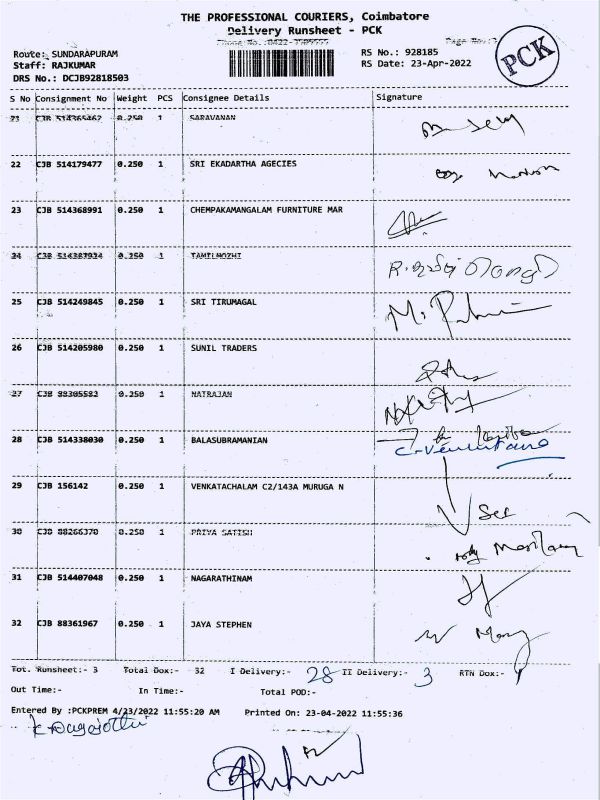 THE PROFESSIONAL COURIERS, Coimbatore
Delivery Runsheet - PCK
Phone No.:0422-
Page No.:3
PCK
Route: SUNDARAPURAM
RS No.: 928185
Staff: RAJKUMAR
RS Date: 23-Apr-2022
DRS No.: DCJB92818503
S No Consignment No Weight PCS Consignee Details Signature
CJB 514365462 0.250 1 SARAVANAN
22 CJB 514179477 0.250 1 SRI EKADARTHA AGECIES
23 CJB 514368991 0.250 1 CHEMPAKAMANGALAM FURNITURE MAR
24 CJB 514387934 0.250 1 TAMILMOZHI
25 CJB 514249845 0.250 1 SRI TIRUMAGAL
26 CJB 514205980 0.250 1 SUNIL TRADERS
27 CJB 88305582 0.250 1 NATRAJAN
28 CJB 514338030 0.250 1 BALASUBRAMANIAN
29 CJB 156142 0.250 1 VENKATACHALAM C2/143A MURUGA N
30 CJB 88266370 0.250 1 PRIYA SATISH
31 CJB 514407048 0.250 1 NAGARATHINAM
32 CJB 88361967 0.250 1 JAYA STEPHEN
Tot. Runsheet:- 3 Total Dox:- 32 I Delivery:- 28 II Delivery:- 3 RTN Dox:- 1
Out Time:- In Time:- Total POD:-
Entered By :PCKPREM 4/23/2022 11:55:20 AM Printed On: 23-04-2022 11:55:36